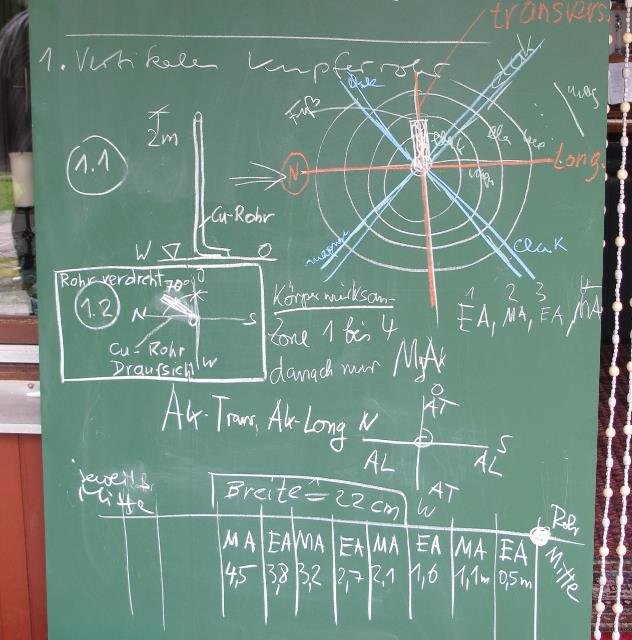 transvers.
1. Vertikales Kupferrohr
elek
elek
2m
1.1
N
Long.
Cu-Rohr
W
O
elek
Rohr verdreht 70°
O
1.2
N
S
Cu-Rohr
Draufsicht
W
Körperwirksam
Zone 1 bis 4
danach nur
1 2 3 4
EA, MA, EA, MA
Alk-Trans, Alk-Long
N
O
AT
S
AL
AL
AT
W
jeweils
Mitte
Breite ≙ 22 cm
Rohr
Mitte
MA EA MA EA MA EA MA EA
4,5 3,8 3,2 2,7 2,1 1,6 1,1m 0,5m